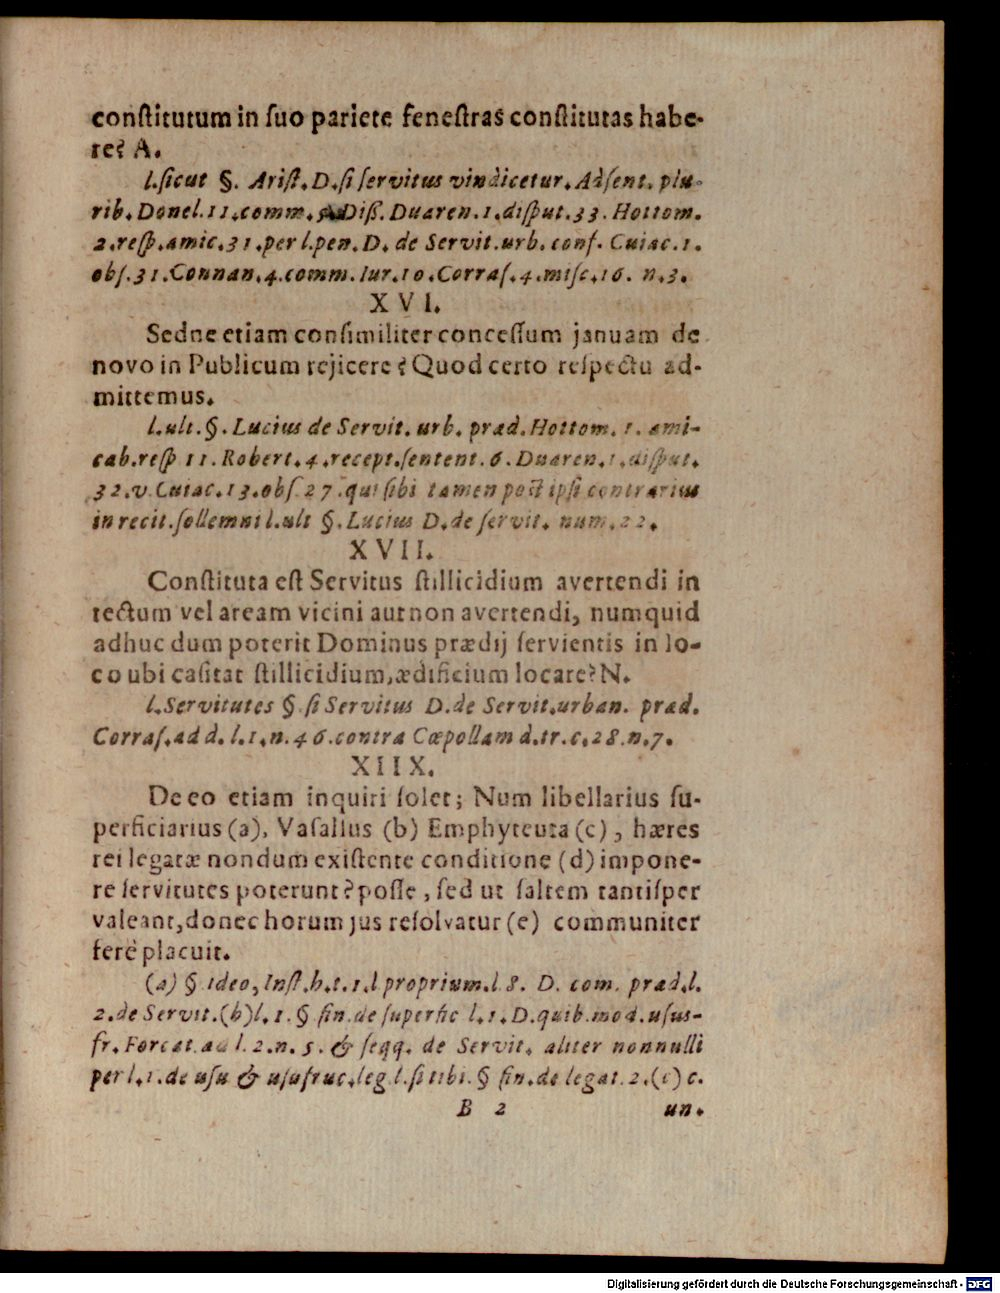 conſtitutum in ſuo pariete feneſtras conſtitutas habe-
re? A.
l.ſicut §. Ariſt. D.ſi ſervitus vindicetur. Adſent. plu-
rib. Donel. 11. comm. Diß. Duaren. 1. diſput. 33. Hottom.
2. reſp. amic. 31. per l. pen. D. de Servit. urb. conf. Cuiac. 1.
obſ. 31. Connan. 4. comm. Iur. 10. Corraſ. 4. miſc. 16. n. 3.
XVI.
Sed ne etiam conſimiliter conceſſum januam de
novo in Publicum rejicere? Quod certo reſpectu ad-
mittemus.
l. ult. §. Lucius de Servit. urb. præd. Hottom. 1. ami-
cab. reſp 11. Robert. 4. recept. ſentent. 6. Duaren. 1. diſput.
32. v. Cuiac. 13. obſ. 27. qui ſibi tamen poſt ipſi contrarius
in recit. ſollemni l. ult §. Lucius D. de ſervit. num. 22.
XVII.
Conſtituta eſt Servitus ſtillicidium avertendi in
tectum vel aream vicini aut non avertendi, numquid
adhuc dum poterit Dominus prædij ſervientis in lo-
co ubi caſitat ſtillicidium, ædificium locare? N.
l. Servitutes § ſi Servitus D. de Servit. urban. præd.
Corraſ. ad d. l. 1. n. 46. contra Cæpollam d. tr. c. 28. n. 7.
XIIX.
De eo etiam inquiri ſolet; Num libellarius ſu-
perficiarius (a), Vaſallus (b) Emphyteuta (c), hæres
rei legatæ nondum exiſtente conditione (d) impone-
re ſervitutes poterunt? poſſe, ſed ut ſaltem tantiſper
valeant, donec horum jus reſolvatur (e) communiter
ferè placuit.
(a) § ideo, Inſt. h. t. 1. l proprium. l 8. D. com. præd. l.
2. de Servit. (b) l. 1. § fin. de ſuperfic l. 1. D. quib. mod. uſus-
fr. Forcat. ad l. 2. n. 5. & ſeqq. de Servit. aliter nonnulli
per l. 1. de uſu & uſufruc. leg. l. ſi tibi. § fin. de legat. 2. (c) c.
B 2 un.
Digitalisierung gefördert durch die Deutsche Forschungsgemeinschaft - DFG